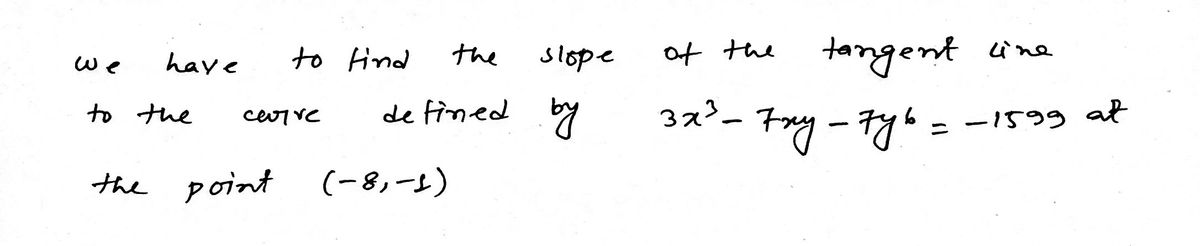 we have to find the slope of the tangent line
to the curve defined by 3x³ - 7xy - 7y⁶ = -1599 at
the point (-8,-1)